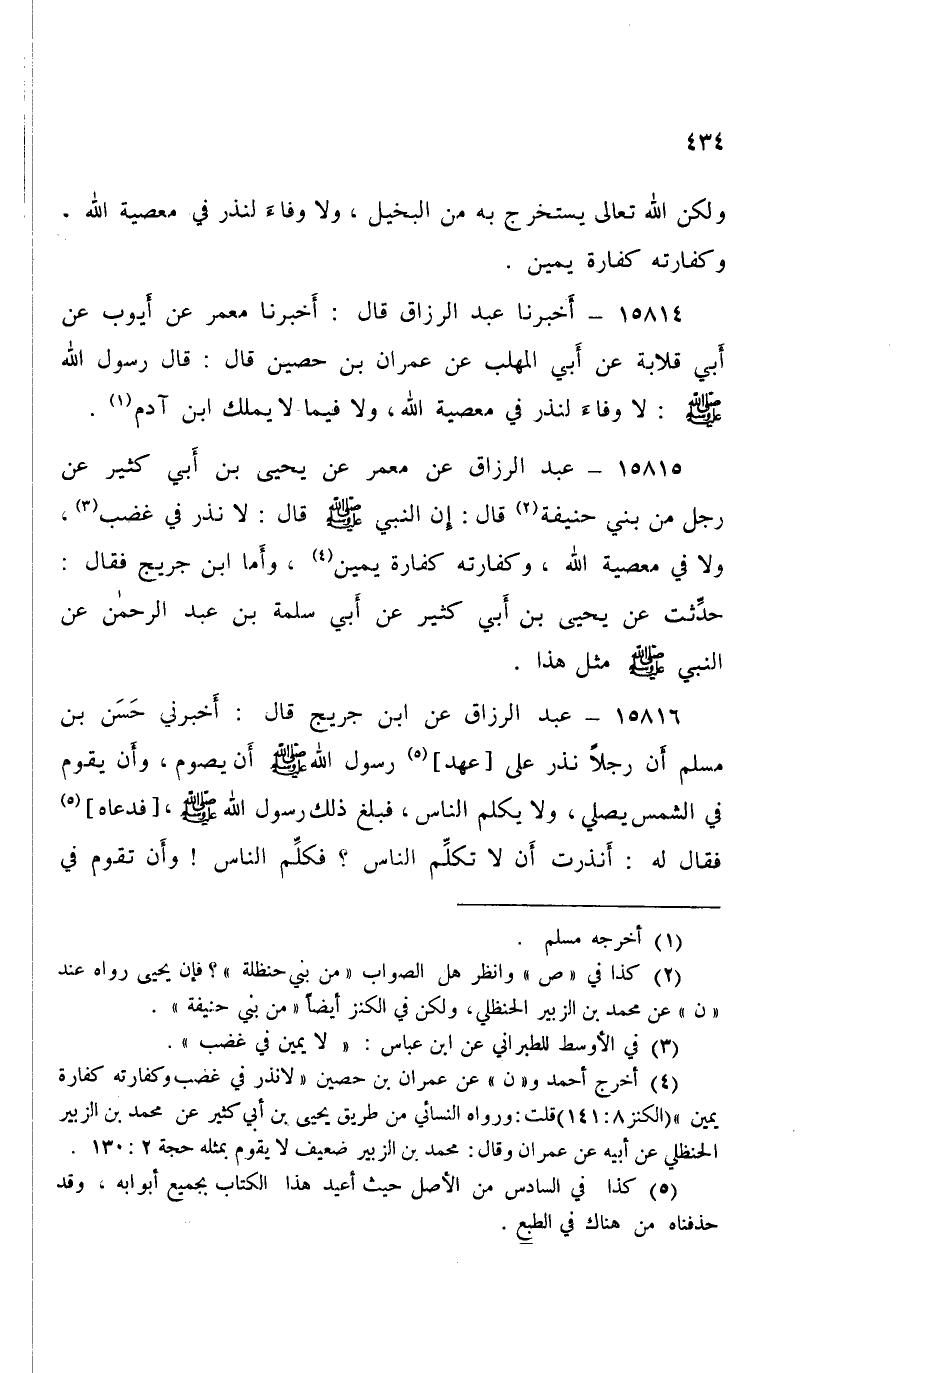 ٤٣٤
ولكن الله تعالى يستخرج به من البخيل ، ولا وفاءَ لنذر في معصية الله .
وكفارته كفارة يمين .
١٥٨١٤ – أَخبرنا عبد الرزاق قال : أَخبرنا معمر عن أَيوب عن
أَبي قلابة عن أَبي المهلب عن عمران بن حصين قال : قال رسول الله
ﷺ : لا وفاءَ لنذر في معصية الله، ولا فيما لا يملك ابن آدم(١) .
١٥٨١٥ – عبد الرزاق عن معمر عن يحيى بن أَبي كثير عن
رجل من بني حنيفة(٢) قال : إِن النبي ﷺ قال : لا نذر في غضب(٣) ،
ولا في معصية الله ، وكفارته كفارة يمين(٤) ، وأَما ابن جريج فقال :
حدِّثت عن يحيى بن أَبي كثير عن أَبي سلمة بن عبد الرحمٰن عن
النبي ﷺ مثل هذا .
١٥٨١٦ – عبد الرزاق عن ابن جريج قال : أَخبرني حَسَن بن
مسلم أَن رجلاً نذر على [عهد](٥) رسول الله ﷺ أَن يصوم ، وأَن يقوم
في الشمس يصلي ، ولا يكلم الناس ، فبلغ ذلك رسول الله ﷺ ، [فدعاه](٥)
فقال له : أَنذرت أَن لا تكلِّم الناس ؟ فكلِّم الناس ! وأَن تقوم في
(١) أخرجه مسلم .
(٢) كذا في « ص » وانظر هل الصواب « من بني حنظلة » ؟ فإن يحيى رواه عند
« ن » عن محمد بن الزبير الحنظلي، ولكن في الكنز أيضاً « من بني حنيفة » .
(٣) في الأوسط للطبراني عن ابن عباس : « لا يمين في غضب » .
(٤) أخرج أحمد و« ن » عن عمران بن حصين « لانذر في غضب وكفارته كفارة
يمين »(الكنز ٨ : ١٤١)قلت : ورواه النسائي من طريق يحيى بن أبي كثير عن محمد بن الزبير
الحنظلي عن أبيه عن عمران وقال : محمد بن الزبير ضعيف لا يقوم بمثله حجة ٢ : ١٣٠ .
(٥) كذا في السادس من الأصل حيث أعيد هذا الكتاب بجميع أبوابه ، وقد
حذفناه من هناك في الطبع .